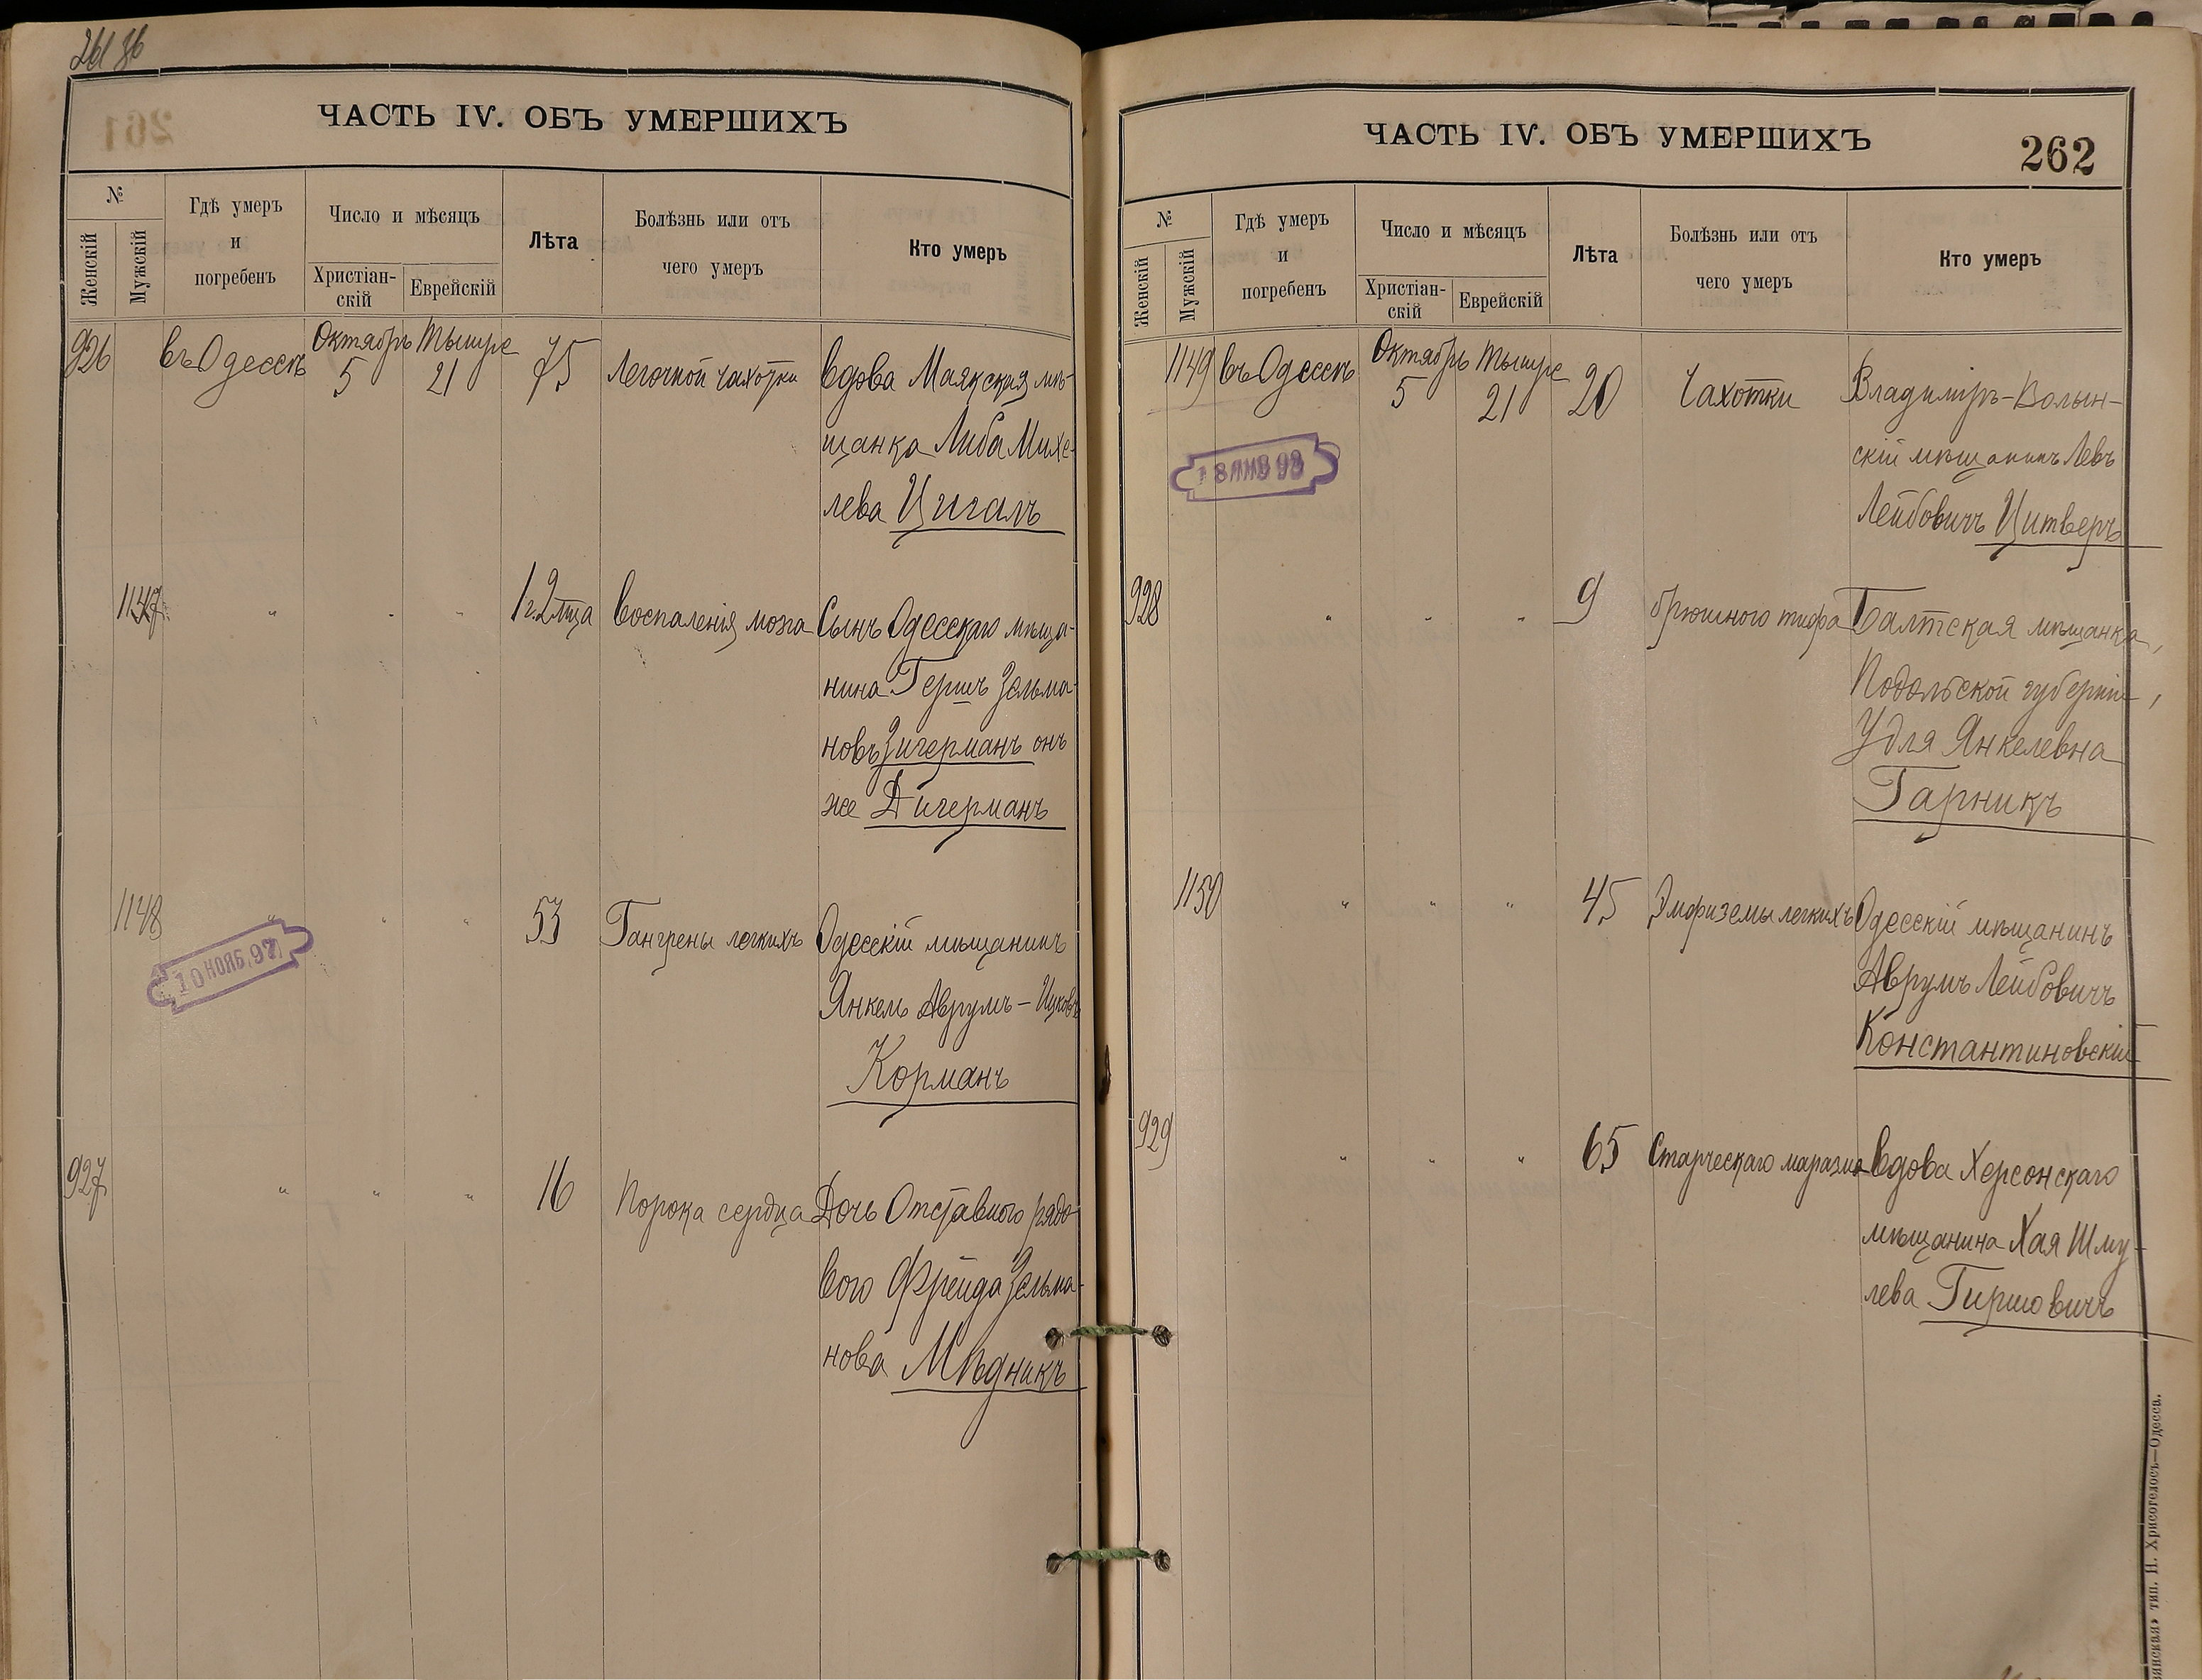 261 36
ЧАСТЬ IV. ОБЪ УМЕРШИХЪ
№
Женскій
Мужскій
Гдѣ умеръ
и
погребенъ
Число и мѣсяцъ
Христіан-
скій
Еврейскій
Лѣта
Болѣзнь или отъ
чего умеръ
Кто умеръ
926 въ Одессѣ Октябрь 5 Тышре 21 75 Легочной чахотки Вдова Маякская мѣ-
щанка Либа Михе-
лева Цигалъ
1147 " " " 1 г. 2 мца Воспаленія мозга Сынъ Одесскаго мѣща-
нина Гершъ Зельма-
новъ Зигерманъ онъ
же Дигерманъ
1148 " " " 53 Гангрены легкихъ Одесскій мѣщанинъ
10 НОЯБ. 97
Янкель Аврумъ-Ицковъ
Корманъ
927 " " " 16 Порока сердца Дочь Отставного рядо-
вого Фрейда Зельма-
нова Мѣдникъ
ЧАСТЬ IV. ОБЪ УМЕРШИХЪ
262
№
Женскій
Мужскій
Гдѣ умеръ
и
погребенъ
Число и мѣсяцъ
Христіан-
скій
Еврейскій
Лѣта
Болѣзнь или отъ
чего умеръ
Кто умеръ
1149 въ Одессѣ Октябрь 5 Тышре 21 20 Чахотки Владимір-Волын-
скій мѣщанинъ Левъ
18 ЯНВ 98
Лейбовичъ Цитверъ
928 " " " 9 брюшного тифа Балтская мѣщанка,
Подольской губерніи,
Удля Янкелевна
Гарникъ
1150 " " " 45 Эмфиземы легкихъ Одесскій мѣщанинъ
Аврумъ Лейбовичъ
Константиновскій
929 " " " 65 Старческаго маразма Вдова Херсонскаго
мѣщанина Хая Шму-
лева Гиршовичъ
тип. Н. Хрисогелосъ—Одесса.